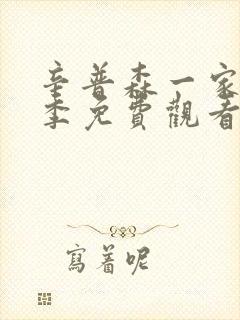 辛普森一家
季免費觀看
寫着呢